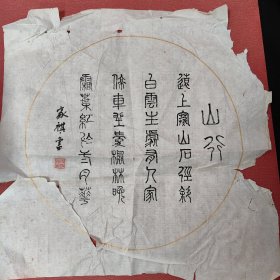 山行
遠上寒山石徑斜
白雲生處有人家
停車坐愛楓林晚
霜葉紅於二月華
家祺書